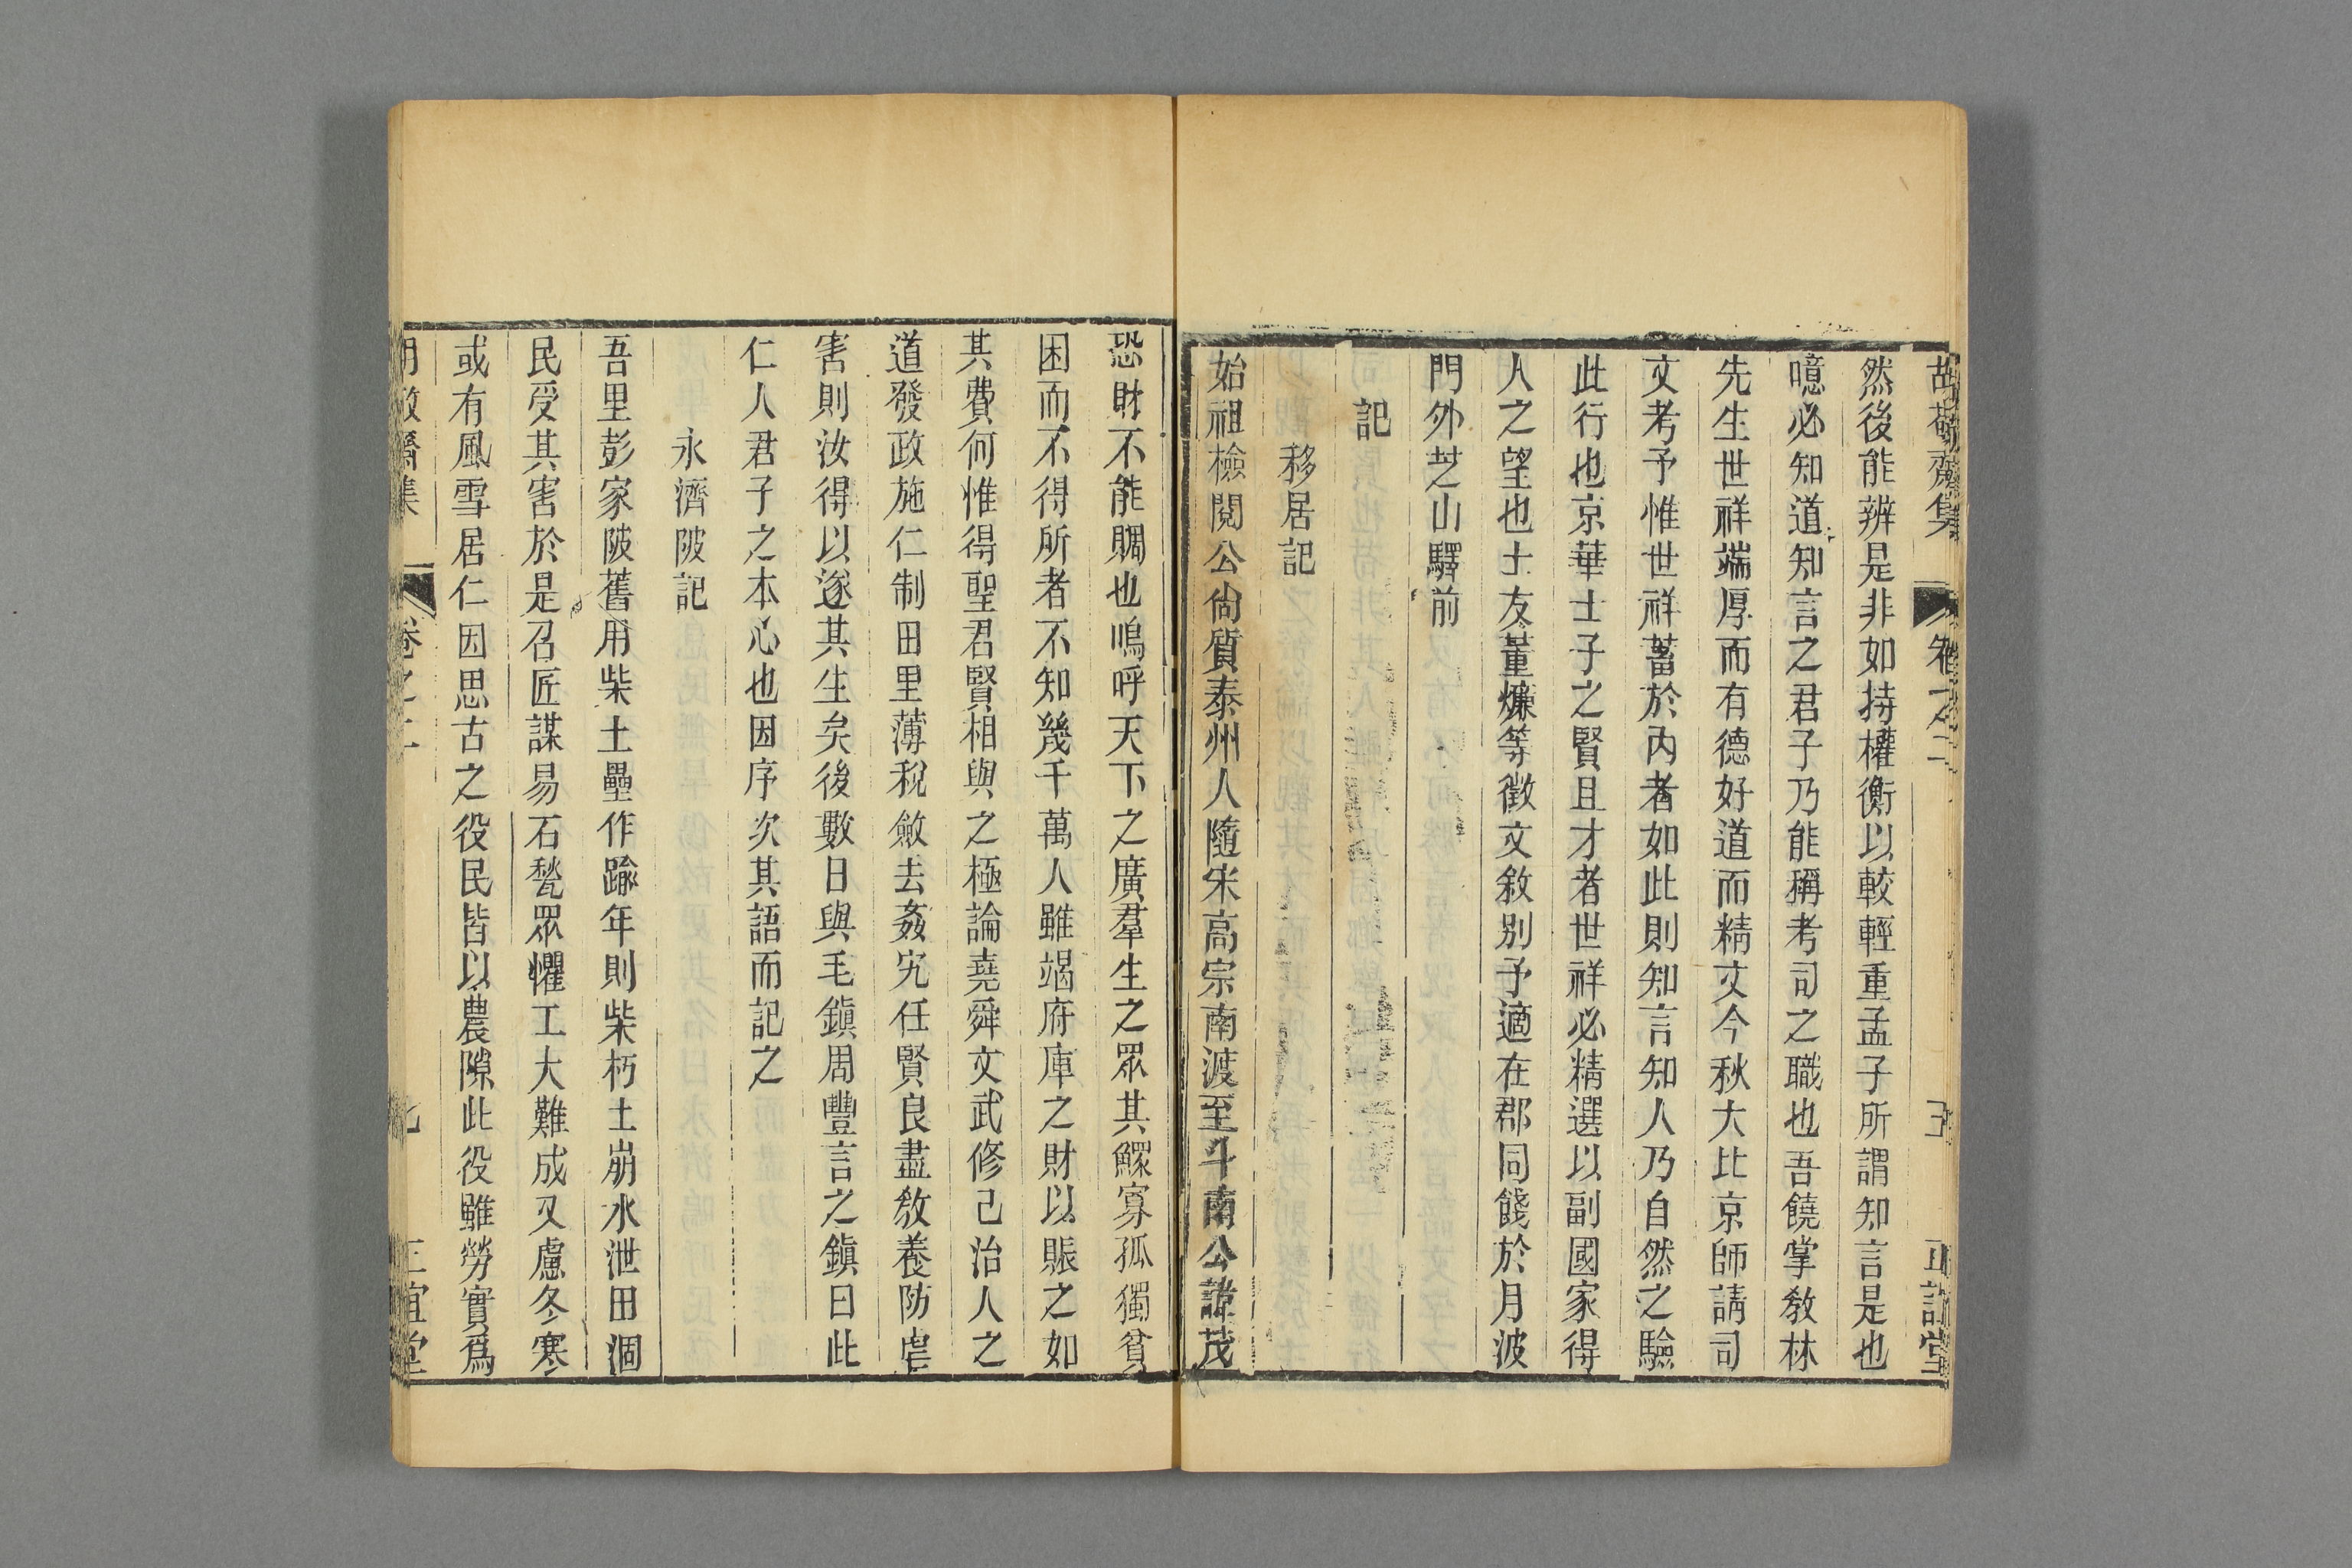 胡敬齋集 卷之二 五 正誼堂
然後能辨是非如持權衡以較輕重孟子所謂知言是也
噫必知道知言之君子乃能稱考司之職也吾饒掌敎林
先生世祥端厚而有德好道而精文今秋大比京師請司
文考予惟世祥蓄於內者如此則知言知人乃自然之驗
此行也京華士子之賢且才者世祥必精選以副國家得
人之望也士友董㷿等徵文敘别予適在郡同餞於月波
門外芝山驛前
記
移居記
始祖檢閱公尙質泰州人隨宋高宗南渡至斗南公諱茂
恐財不能賙也嗚呼天下之廣羣生之眾其鰥寡孤獨貧
困而不得所者不知幾千萬人雖竭府庫之財以賑之如
其費何惟得聖君賢相與之極論堯舜文武修己治人之
道發政施仁制田里薄稅斂去姦宄任賢良盡敎養防虐
害則汝得以遂其生矣後數日與毛鎭周豐言之鎭曰此
仁人君子之本心也因序次其語而記之
永濟陂記
吾里彭家陂舊用柴土壘作踰年則柴朽土崩水泄田涸
民受其害於是召匠謀易石甃眾懼工大難成又慮冬寒
或有風雪居仁因思古之役民皆以農隙此役雖勞實爲
胡敬齋集 卷之二 七 正誼堂